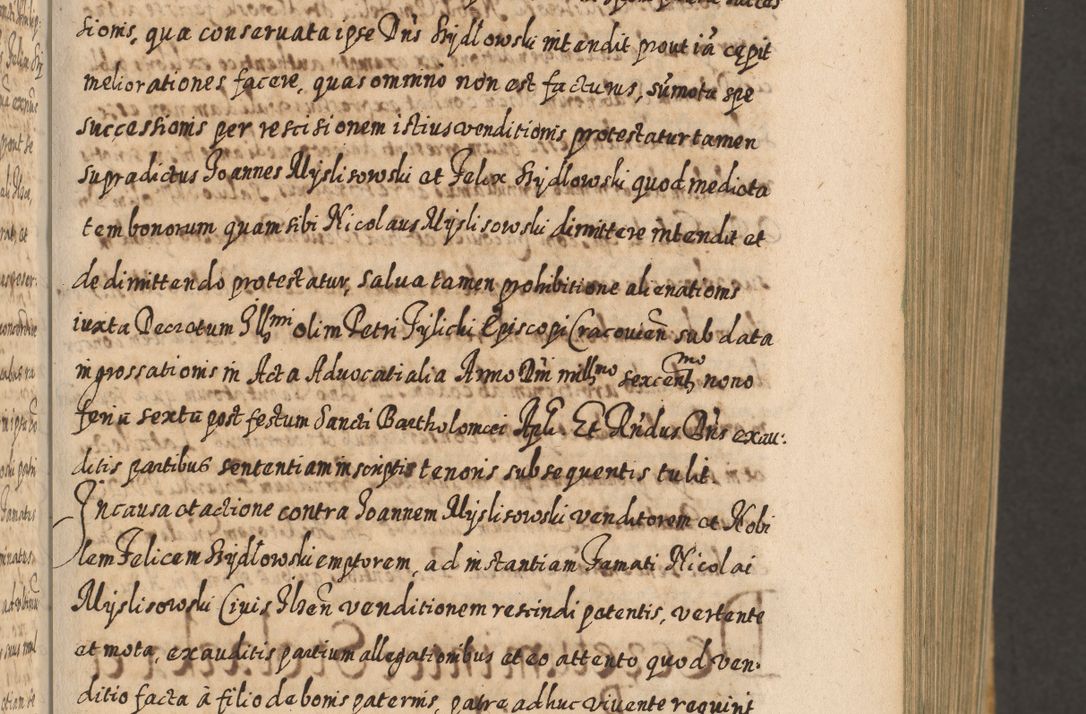 sionis, qua conseruata ipse Dns Szydłowski intendit prout iã cępit
meliorationes facere, quas omnino non est facturus, sũmota spe
successionis per rescisionem istius venditionis, protestatur tamen
supradictus Joannes Myslisowski et Felix Szydłowski quod medieta
tem bonorum quam sibi Nicolaus Myslisowski dimittere intendit et
de dimittendo protestatur, salua tamen prohibitione alienationis
iuxta Decretum Illmi olim Petri Tylicki Episcopi Cracouień sub data
ingrossationis in Acta Advocatialia Anno Dni millmo sexcentmo nono
feria sexta post festum Sancti Bartholomei Apli. Et Rndus Dns exau:
ditis partibus sententiam in scriptis tenoris subsequentis tulit
In causa et actione contra Joannem Myslisowski venditorem et Nobi
lem Felicem Szydłowski emptorem, ad instantiam Famati Nicolai
Myslisowski Civis Ilzeń venditionem rescindi petentis, vertente
et mota, exauditis partium allegationibus et eo attento quod ven:
ditio facta à filio de bonis paternis, patre adhuc vivente requirit